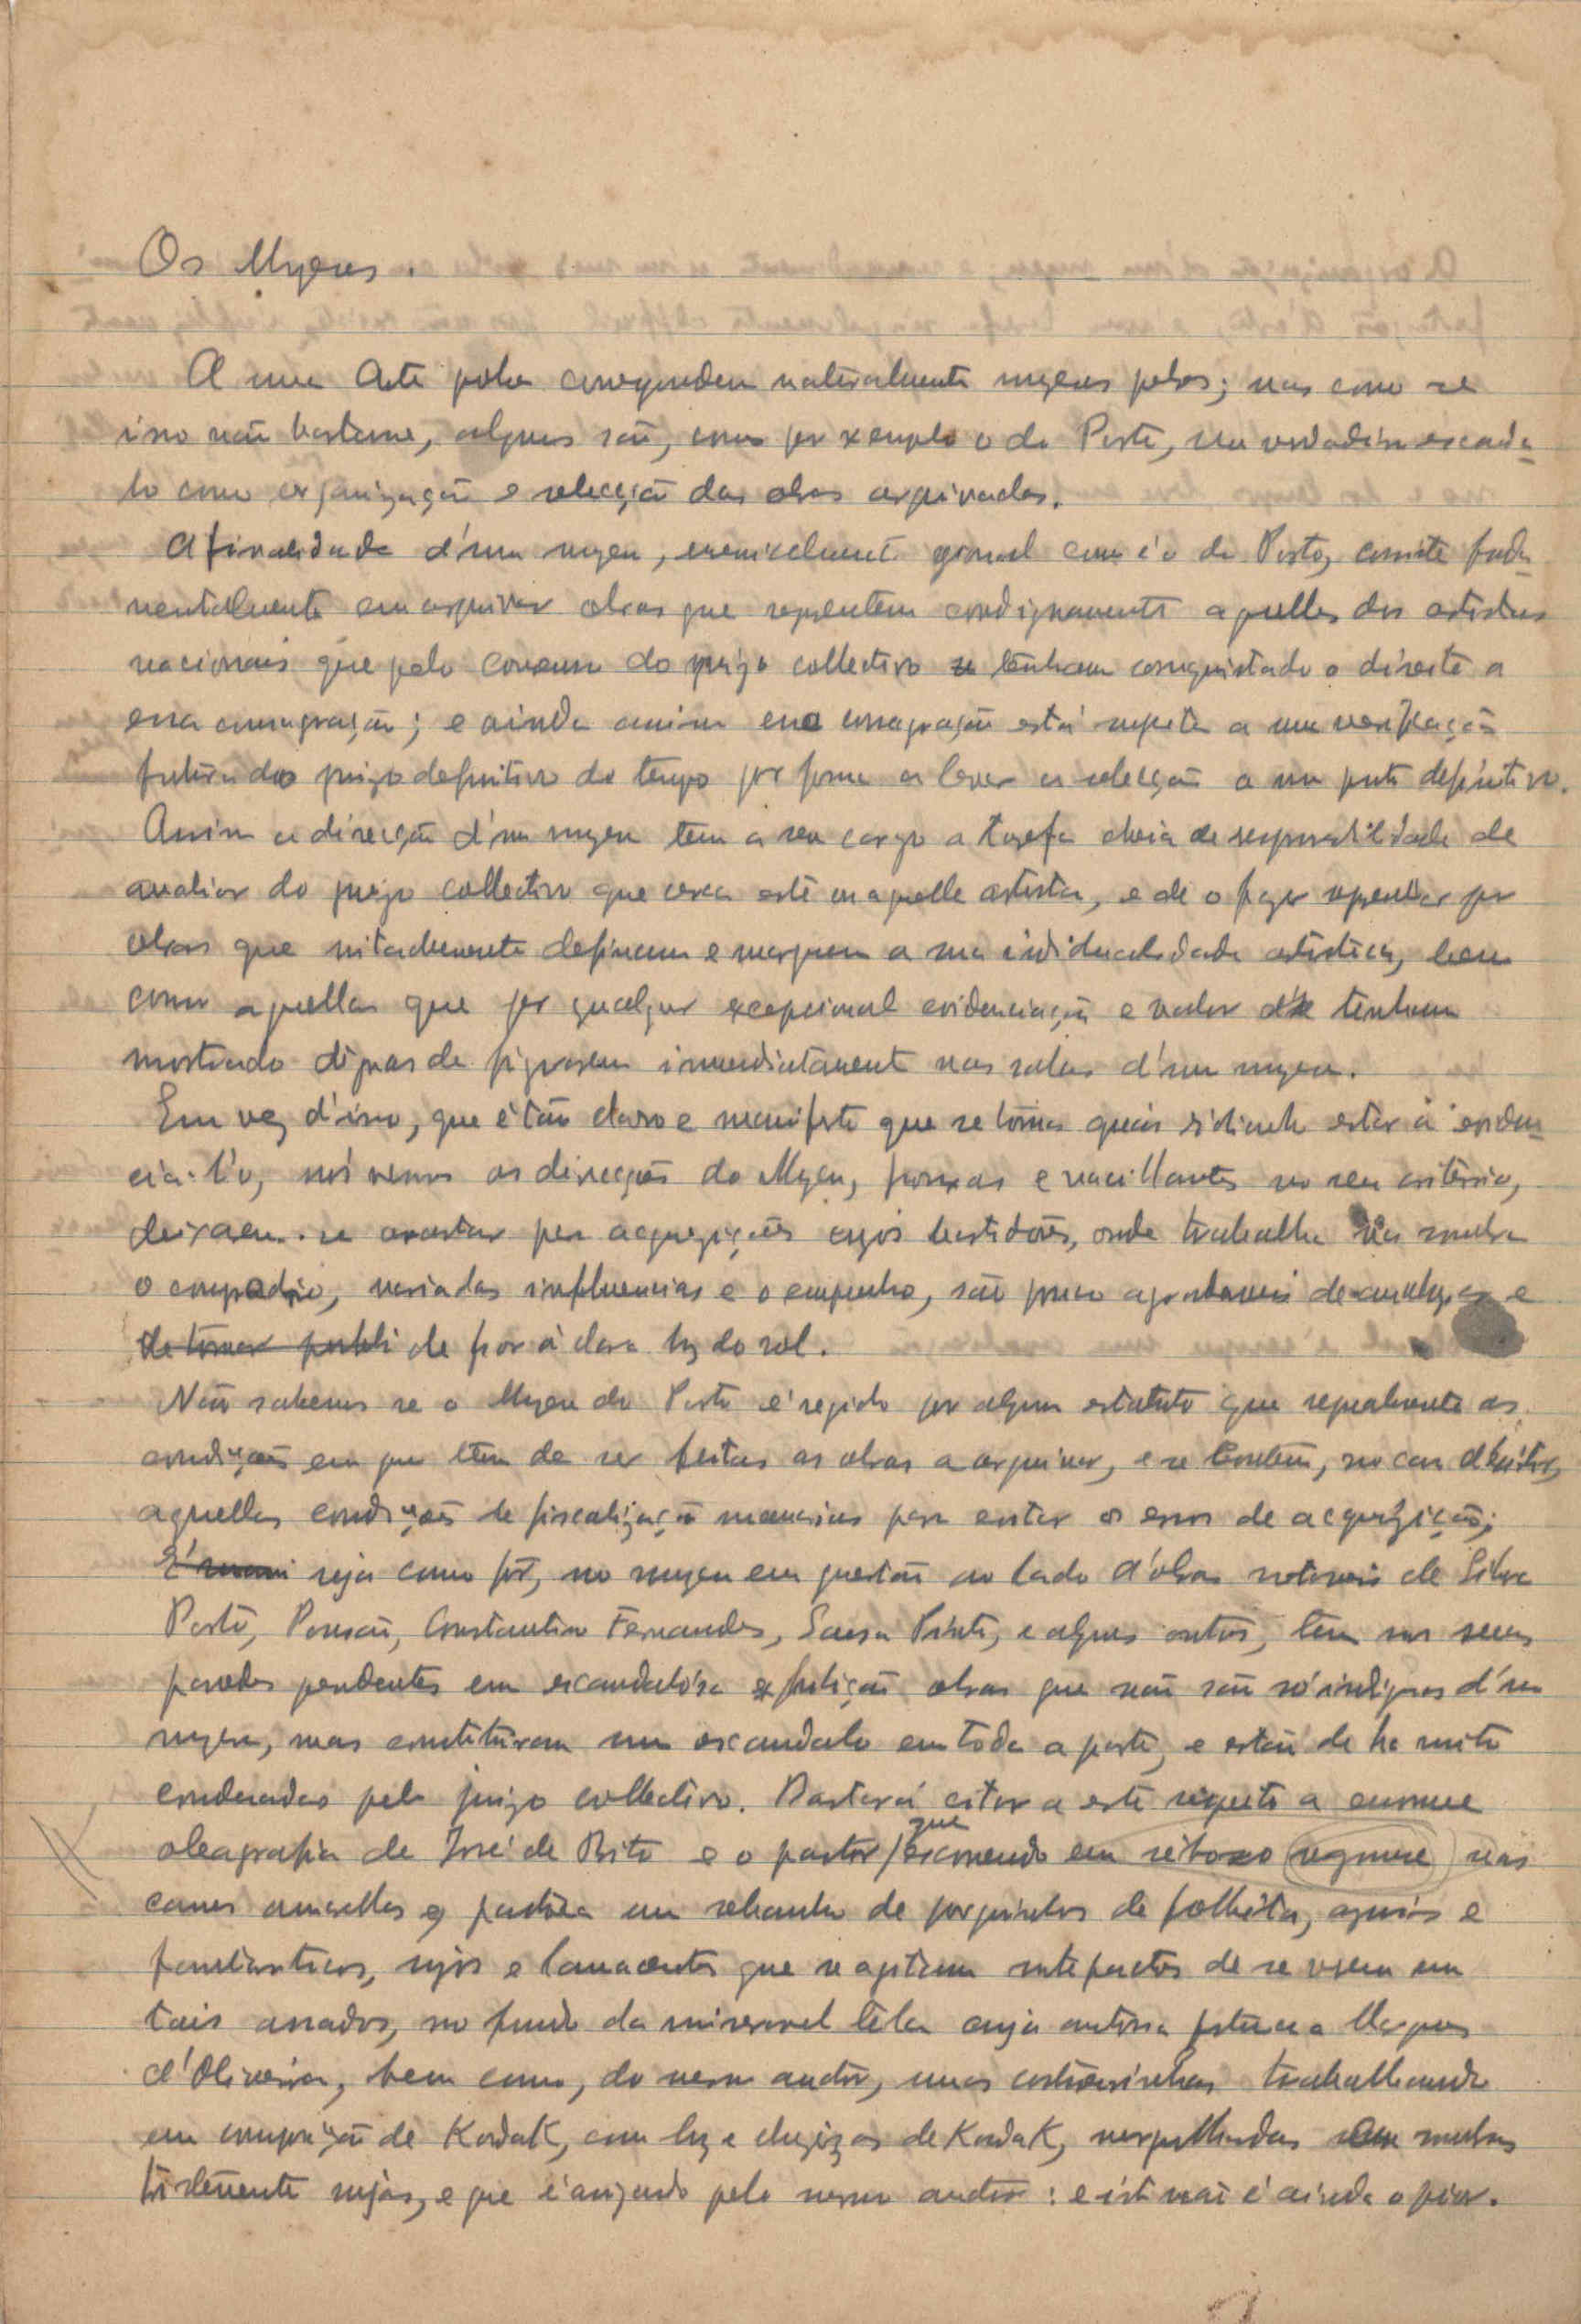 Os Muzeus.
A uma Arte pobre correspondem naturalmente muzeus pobres; mas como se
isso não bastasse, alguns são, como por exemplo o do Porto, um verdadeiro escanda-
lo como organização e selecção das obras arquivadas.
A finalidade d'um muzeu, essencialmente geral como é o do Porto, consiste funda-
mentalmente em arquivar obras que representem condignamente aquelles dos artistas
nacionais que pelo consenso do juizo collectivo se tenham conquistado o direito a
essa consagração; e ainda assim essa consagração está sujeita a uma verificação
futura do juizo definitivo do tempo por forma a levar a selecção a um ponto definitivo.
Assim a direcção d'um muzeu tem a seu cargo a tarefa cheia de responsabilidade de
avaliar do juizo collectivo que cerca este ou aquelle artista, e de o fazer representar por
obras que nitidamente definam e marquem a sua individualidade artistica, bem
como aquellas que por qualquer excepcional evidenciação e valor se tenham
mostrado dignas de figurarem immediatamente nas salas d'um muzeu.
Em vez d'isso, que é tão claro e manifesto que se torna quasi ridiculo estar a eviden-
cia-l'o, nós vemos as direcções do Muzeu, frouxas e vacillantes no seu critério,
deixarem-se arrastar para acquizições cujos bastidores, onde trabalha na sombra
o compadrio, variadas influencias e o empenho, são pouco agradaveis de analyzar e
de tornar publi de pôr à clara luz do sol.
Não sabemos se o Muzeu do Porto é regido por algum estatuto que regulamente as
condições em que têm de ser feitas as obras a arquivar, e se contem, no caso d'existir,
aquellas condições de fiscalização necessarias para evitar os erros de acquizição;
seja como fôr, no muzeu em questão ao lado d'obras notaveis de Silva
Porto, Pousão, Constantino Fernandes, Sousa Pinto, e alguns outros, tem nas suas
paredes pendentes em escandalósa exposição obras que não são só indignas d'um
muzeu, mas constituiram um escandalo em toda a parte, e estão de ha muito
condenadas pelo juizo collectivo. Bastará citar a este respeito a enorme
oleografia de José de Brito e o pastor/ que escorrendo em rebôxo regouxe nas
carnes amarellas pastóra um rebanho de porquinhos de folhêta, azuis e
fantasticos, sujos e lamacentos que se agitam estupefactos de se verem em
tais assados, no fundo da miseravel téla cuja autoria pertence a Marques
d'Oliveira, bem como, do mesmo autôr, umas costureirinhas trabalhando
em composição de Kodak, com luz e de Kodak, mergulhadas em sombras
tristemente sujas, e que é assignado pelo mesmo autor: e isto não é ainda o peor.